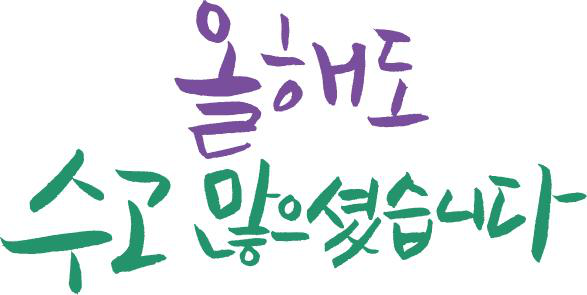 올해도
수고 많으셨습니다